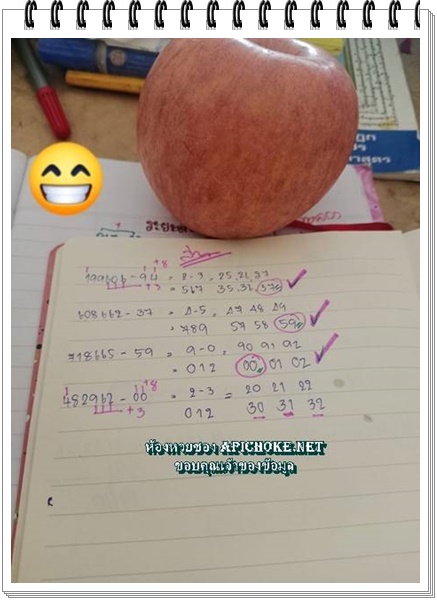 ล่าง
+8
190606 - 94 = 2-3 , 25, 26, 37
+3 = 567 35, 36, 37
608662 - 37 = 4-5 , 47 48 49
= 789 57 58 59
718665 - 59 = 9-0 , 90 91 92
= 012 00 01 02
+8
482962 - 00 = 2-3 = 20 21 22
+3 012 30 31 32
ห้องหวยซอง APICHOKE.NET
ขอบคุณเจ้าของข้อมูล